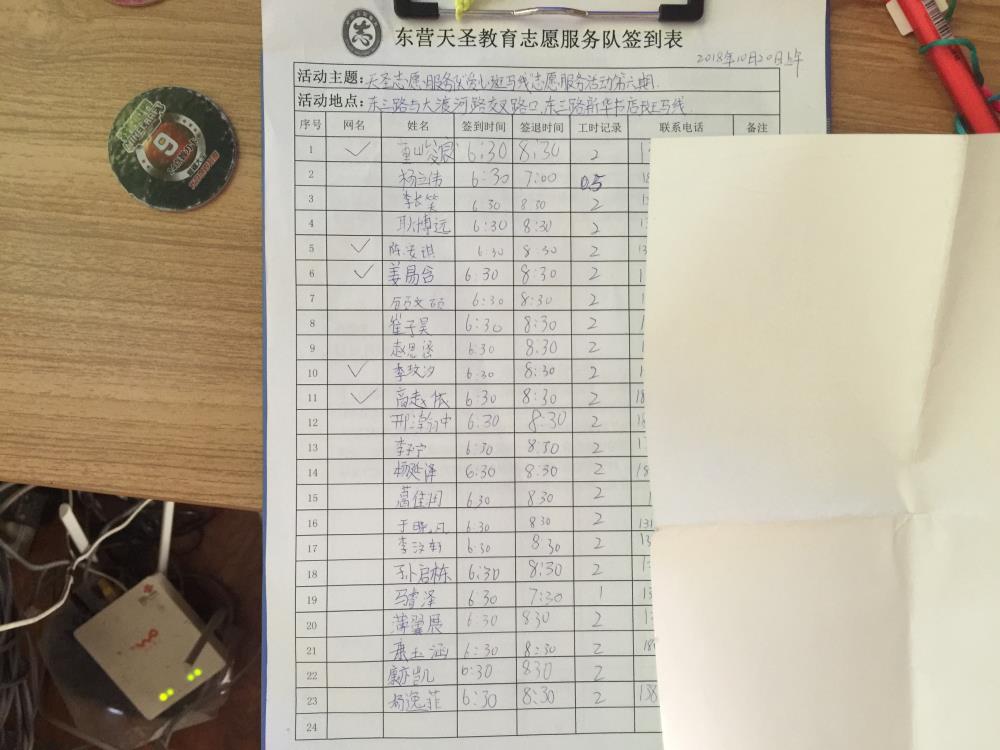 志
东营天圣教育志愿服务队签到表
2018年10月20日上午
活动主题: 天圣志愿服务队斑马线志愿服务活动第六期.
活动地点: 东三路与大渡河路交叉路口,东三路新华书店段斑马线
序号 网名 姓名 签到时间 签退时间 工时记录 联系电话 备注
1 ✓ 6:30 8:30 2 1
2 杨立伟 6:30 7:00 0.5 18
3 李长笑 6 30 8 30 2
4 耿博远 6:30 8:30 2
5 ✓ 陈安琪 6:30 8:30 2 13
6 ✓ 姜易含 6:30 8:30 2 1
7 6:30 8:30 2 1
8 崔子昊 6:30 8:30 2 1
9 赵思涵 6:30 8:30 2
10 ✓ 李玟汐 6:30 8:30 2
11 ✓ 高赵依 6:30 8:30 2 18
12 6:30 8:30 2
13 李子宁 6:30 8:30 2 1
14 杨延泽 6:30 8:30 2 18
15 葛佳润 6 30 8 30 2
16 于晓凡 6:30 8 30 2 131
17 李汶轩 6:30 8 30 2 13
18 孙启栋 6:30 8:30 2
19 马睿泽 6:30 7:30 1 13
20 薄翼展 6:30 8 30 2
21 玉涵 6:30 8:30 2
22 凯 6:30 8 30 2
23 杨逸菲 6:30 8:30 2 138
24
9